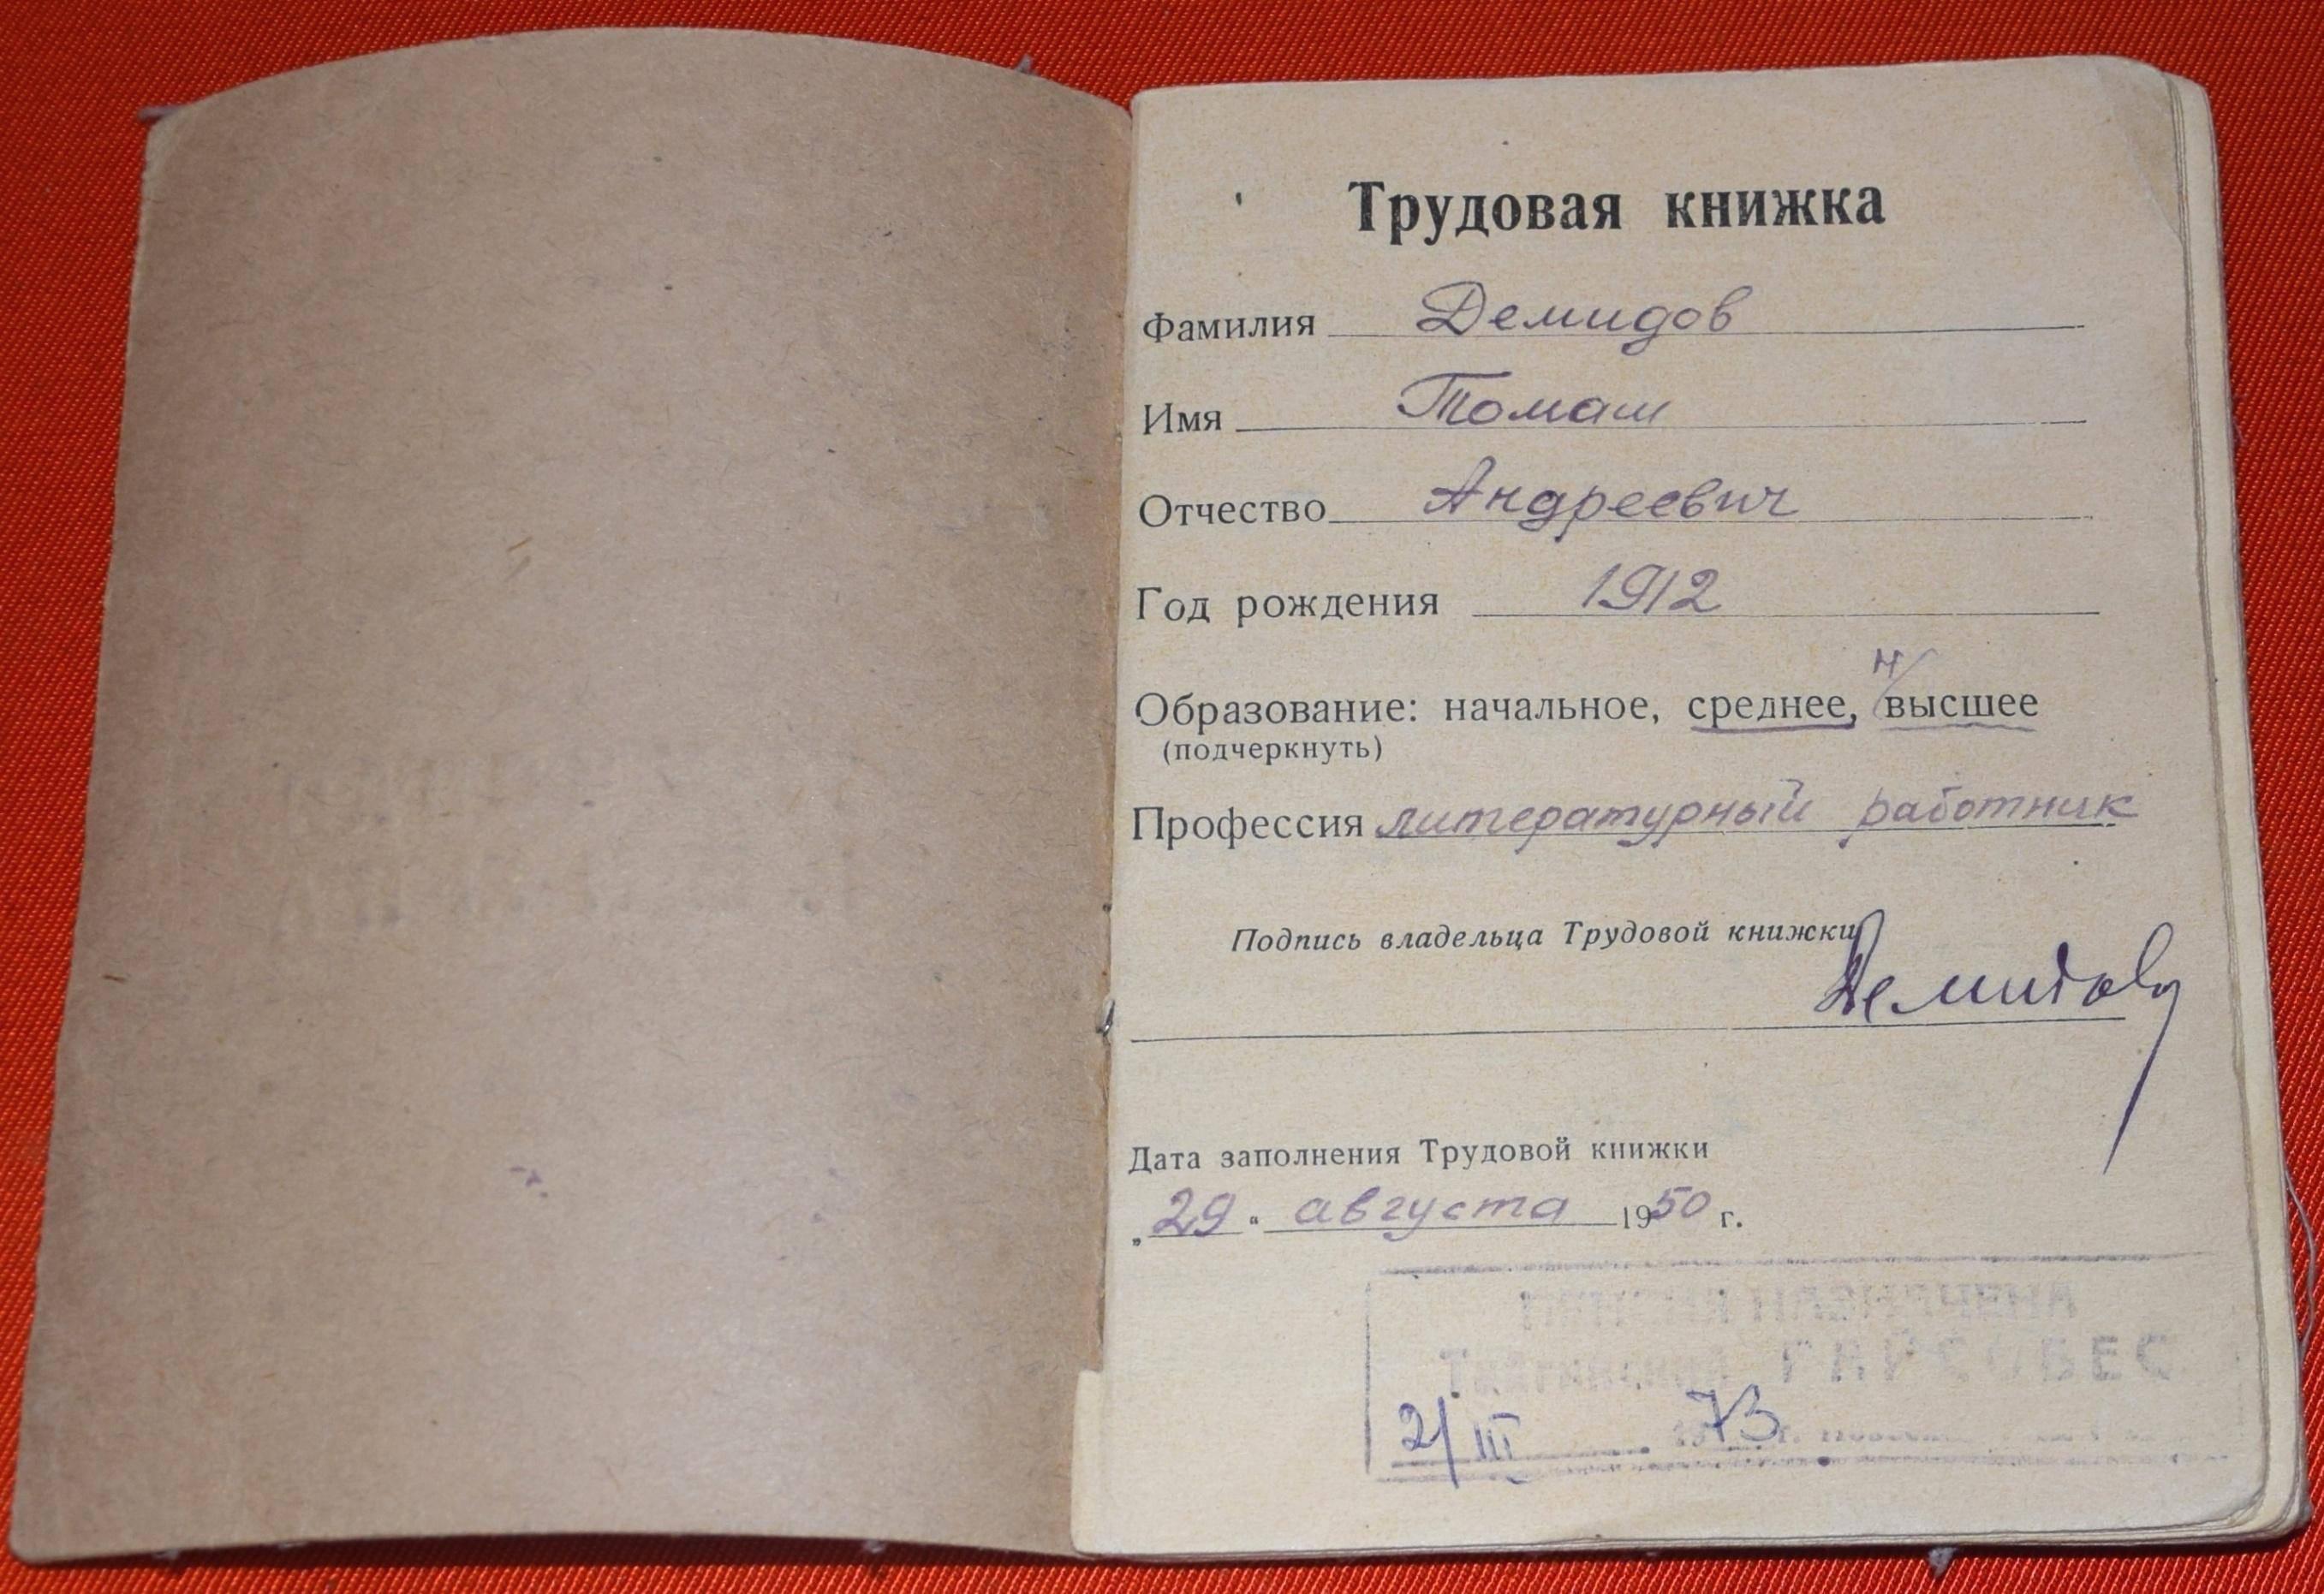 Трудовая книжка
Фамилия Демидов
Имя Томаш
Отчество Андреевич
Год рождения 1912
Образование: начальное, среднее, н/высшее
(подчеркнуть)
Профессия литературный работник
Подпись владельца Трудовой книжки
Демидов
Дата заполнения Трудовой книжки
„29“ августа 1950 г.
ПЕНСИЯ НАЗНАЧЕНА
РАЙСОБЕС
2/III 1973 г.